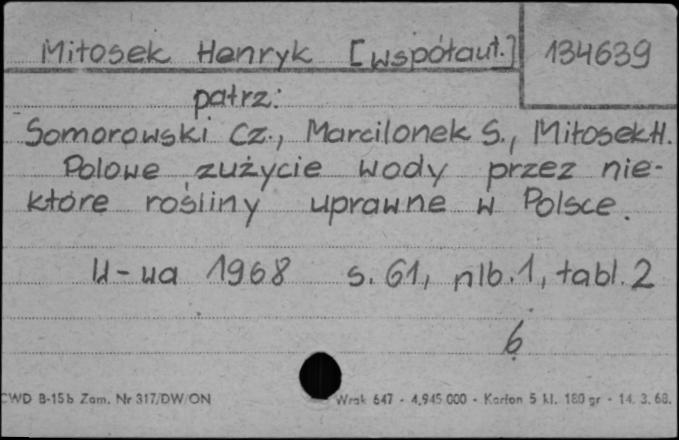 Mitosek Henryk [współaut.] 134639
patrz:
Somorowski Cz., Marcilonek S., Mitosek H.
Polowe zużycie wody przez nie-
które rośliny uprawne w Polsce.
W-wa 1968 s. 61, nlb. 1, tabl. 2
6
CWD B-15b Zam. Nr 317/DW/ON Wrak 647 - 4,945.000 - Karton 5 kl. 180 gr - 14. 3. 68.